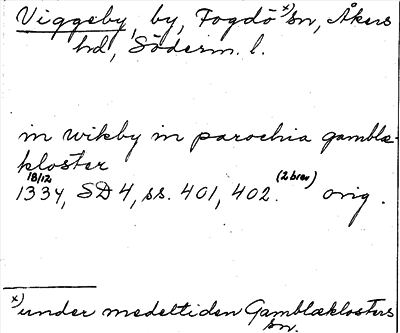 Viggeby, by, Fogdö x) sn, Åkers
hd, Söderm. l.
in wikby in parochia gamblæ-
kloster
18/12
1334, SD 4, ss. 401, 402. (2 brev) orig.
x) under medeltiden Gamblæklosters
sn.